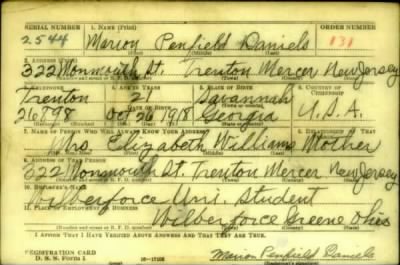 SERIAL NUMBER 1. NAME (Print) ORDER NUMBER
2544 Marion Penfield Daniels 131
(First) (Middle) (Last)
2. ADDRESS (Print)
322 Monmouth St. Trenton Mercer New Jersey
(Town) (County) (State)
3. TELEPHONE 4. AGE IN YEARS 5. PLACE OF BIRTH 6. COUNTRY OF CITIZENSHIP
Trenton 21 Savannah
DATE OF BIRTH
26898 Oct 26 1918 Georgia U.S.A.
7. NAME OF PERSON WHO WILL ALWAYS KNOW YOUR ADDRESS 8. RELATIONSHIP OF THAT
Mrs. Elizabeth Williams Mother
9. ADDRESS OF THAT PERSON
322 Monmouth St. Trenton Mercer New Jersey
10. EMPLOYER'S NAME
Wilberforce Uni. Student
11. PLACE OF EMPLOYMENT OR BUSINESS
Wilberforce Greene Ohio
I AFFIRM THAT I HAVE VERIFIED ABOVE ANSWERS AND THAT THEY ARE TRUE.
REGISTRATION CARD
D. S. S. Form 1 16—17105 Marion Penfield Daniels